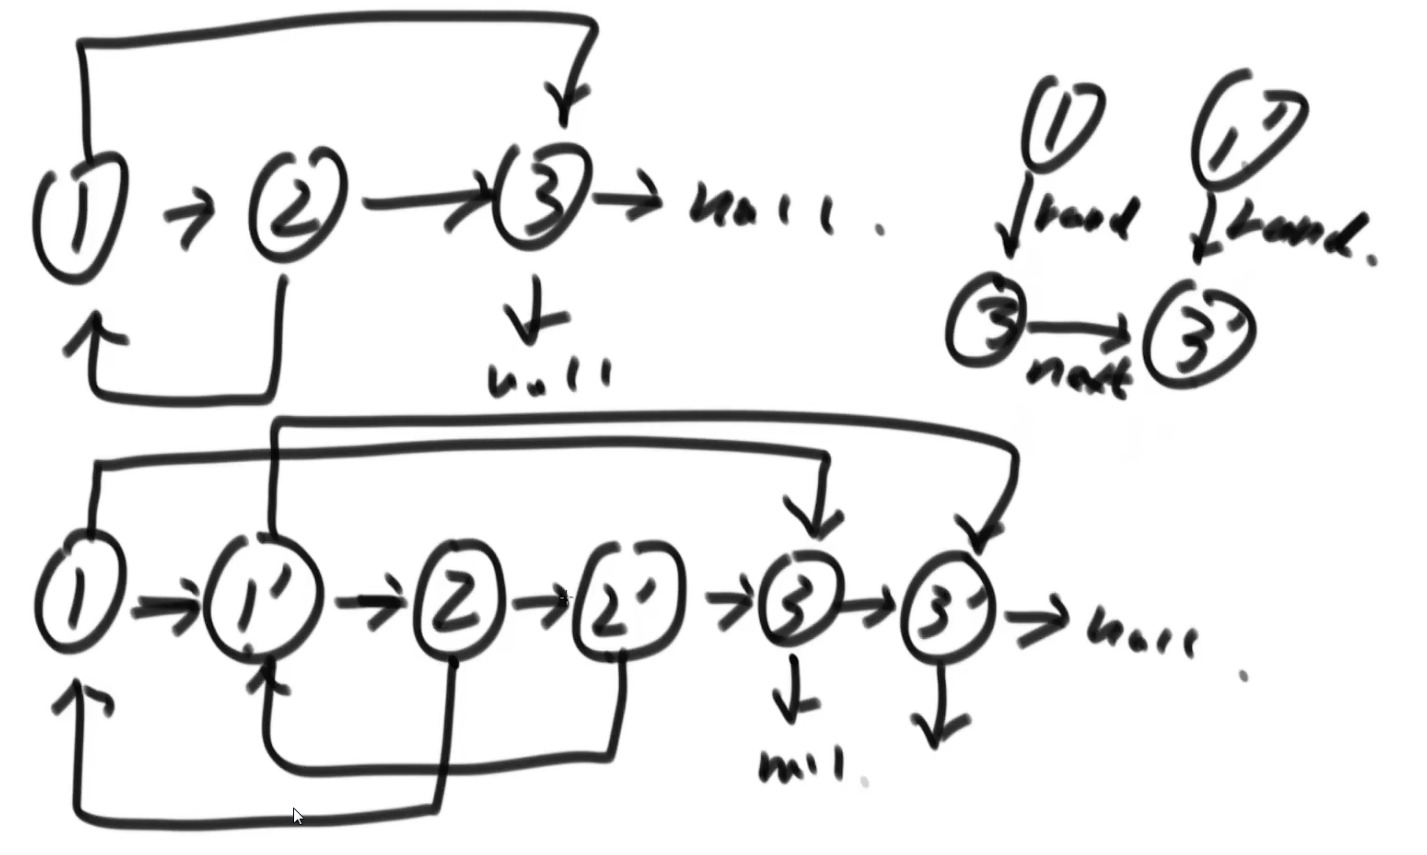 1 → 2 → 3 → null.
null
1 1'
rand rand.
3 → 3'
next
1 → 1' → 2 → 2' → 3 → 3' → null.
null.